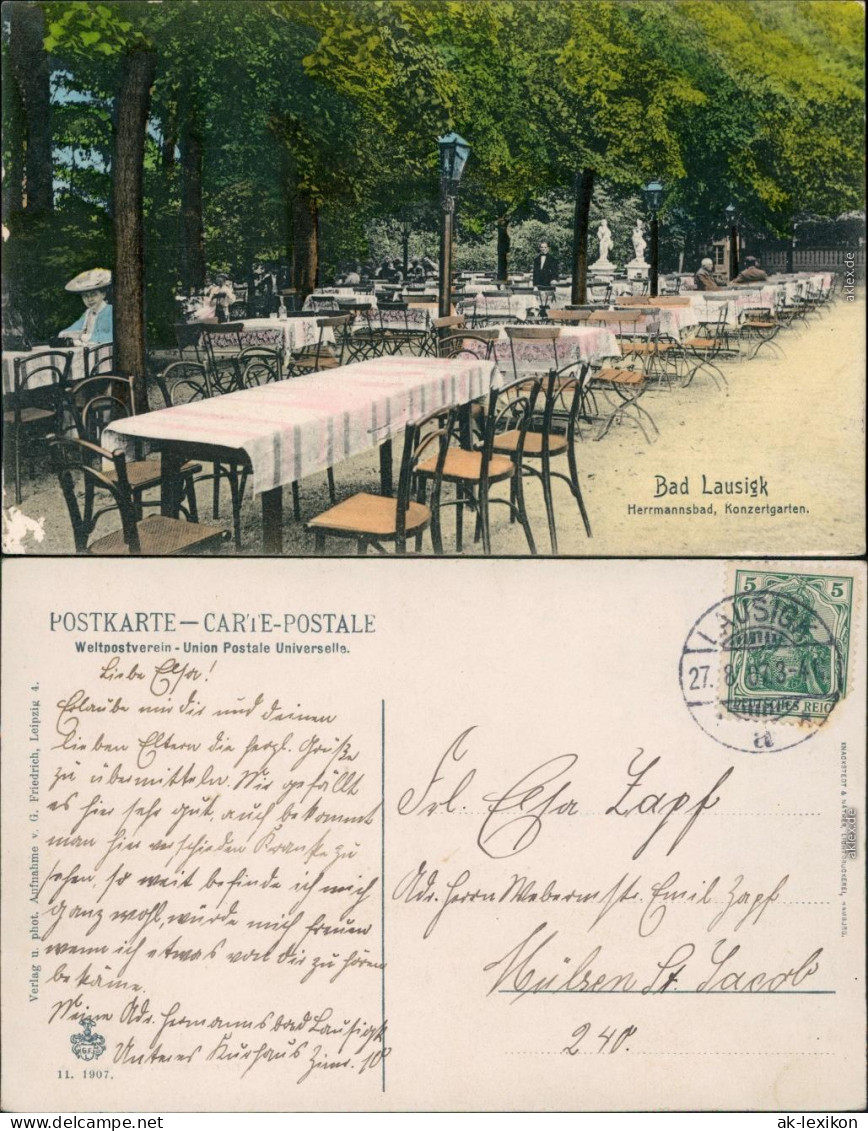 Bad Lausigk
Herrmannsbad, Konzertgarten.
aklex.de
POSTKARTE — CARTE-POSTALE
Weltpostverein - Union Postale Universelle.
5 5
DEUTSCHES REICH
LAUSIGK
27. 8. 07. 3-4
a
Liebe Elsa!
Erlaube mir dir und deinen
lieben Eltern die herzl. Grüße
zu übermitteln. Mir gefällt
es hier sehr gut, auch bekommt
man hier verschieden Kranke zu
sehen, so weit befinde ich mich
ganz wohl, würde mich freuen
wenn ich etwas von dir zu hören
bekäme.
Meine Adr. Hermannsbad Lausigk
Unteres Kurhaus Zimr. 10
Frl. Elsa Zapf
Adr. Herrn Webermstr. Emil Zapf
Mülsen St. Jacob
240.
Verlag u. phot. Aufnahme v. G. Friedrich, Leipzig 4.
11. 1907.
KNACKSTEDT & NÄTHER, LICHTDRUCKEREI, HAMBURG.
aklex.de
www.delcampe.net
ak-lexikon